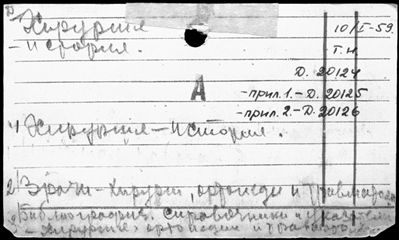 Хирургия
– история.
10/I-59.
Т.Н.
Д. 20124
А
-прил.1.-Д. 20125
-прил.2.-Д. 20126
1) Хирургия – история.
2) Врачи - хирурги, ортопеды и травматологи
3) Библиография. Справочники и указатели
- хирургия, ортопедия и